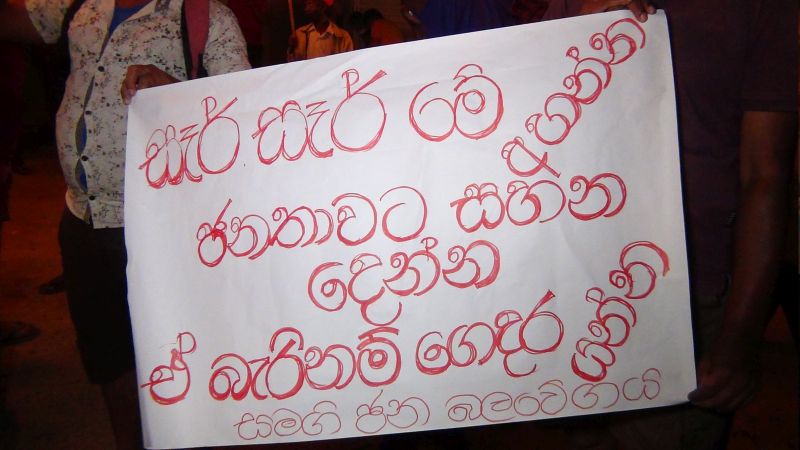 සෑර් සෑර් මේ අහන්න
ජනතාවට සහන
දෙන්න
ඒ බැරිනම් ගෙදර යන්න
සමගි ජන බලවේගය